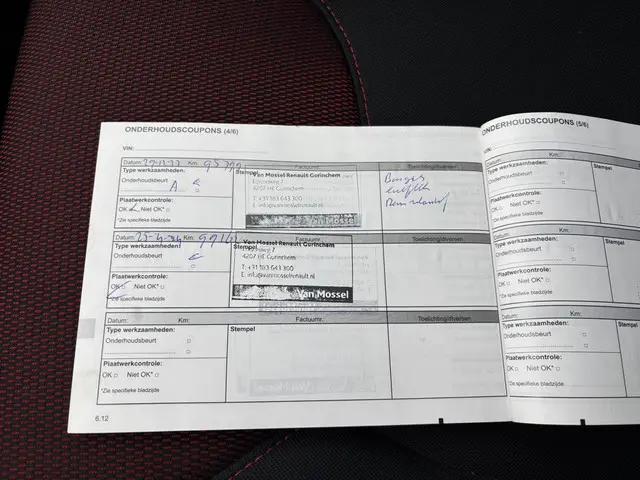 ONDERHOUDSCOUPONS (4/6)
VIN:
Datum: Km: Factuurnr. Toelichting/diversen
Type werkzaamheden:
Onderhoudsbeurt
A
Plaatwerkcontrole:
OK Niet OK*
*Zie specifieke bladzijde
Stempel
Van Mossel Renault Gorinchem
4207 HE Gorinchem
T: +31 183 643 300
Banges
Datum: Km: Factuurnr. Toelichting/diversen
Type werkzaamheden:
Onderhoudsbeurt
Plaatwerkcontrole:
OK Niet OK*
*Zie specifieke bladzijde
Stempel
Van Mossel Renault Gorinchem
4207 HE Gorinchem
T: +31 183 643 300
E: info@vanmosselrenault.nl
Van Mossel
Datum: Km: Factuurnr. Toelichting/diversen
Type werkzaamheden:
Onderhoudsbeurt
Plaatwerkcontrole:
OK Niet OK*
*Zie specifieke bladzijde
Stempel
6.12
ONDERHOUDSCOUPONS (5/6)
VIN:
Datum: Km:
Type werkzaamheden:
Onderhoudsbeurt
Plaatwerkcontrole:
OK Niet OK*
*Zie specifieke bladzijde
Stempel
Datum: Km:
Type werkzaamheden:
Onderhoudsbeurt
Plaatwerkcontrole:
OK Niet OK*
*Zie specifieke bladzijde
Stempel
Datum: Km:
Type werkzaamheden:
Onderhoudsbeurt
Plaatwerkcontrole:
OK Niet OK*
*Zie specifieke bladzijde
Stempel